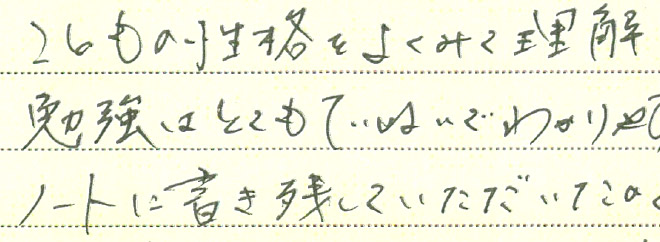 子どもの性格をよくみて理解
勉強はとてもていねいでわかりやす
ノートに書き残していただいたの